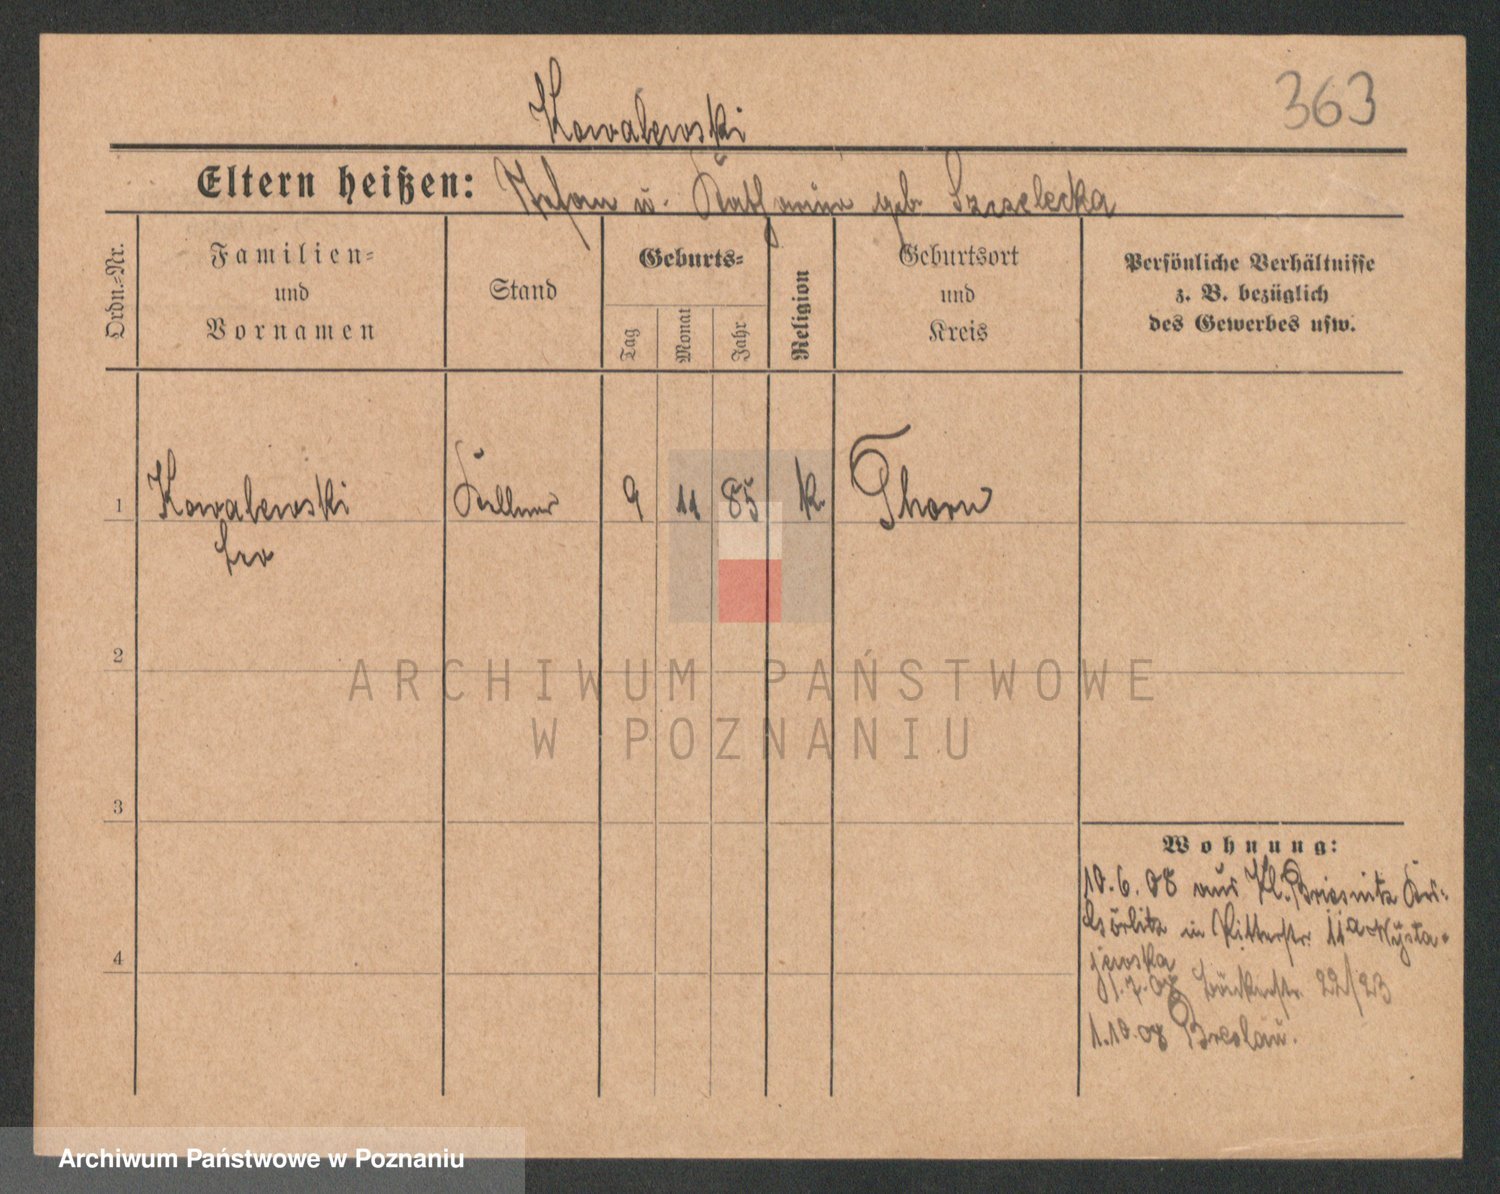 363
Kowalewski
Eltern heißen: Stefan u. Katharina geb. Szczelecka
Ordn.-Nr.
Familien-
und
Vornamen
Stand
Geburts-
Tag
Monat
Jahr
Religion
Geburtsort
und
Kreis
Persönliche Verhältnisse
z. B. bezüglich
des Gewerbes usw.
1 Kowalewski Kellner 9 11 85 k. Thorn
Leo
2
ARCHIWUM PAŃSTWOWE
W POZNANIU
3
Wohnung:
10.6.08 aus Kl. Briesnitz
Görlitz in Ritterstr. 11a
4
1.7.08 Bäckerstr. 22/23
1.10.08 Breslau.
Archiwum Państwowe w Poznaniu